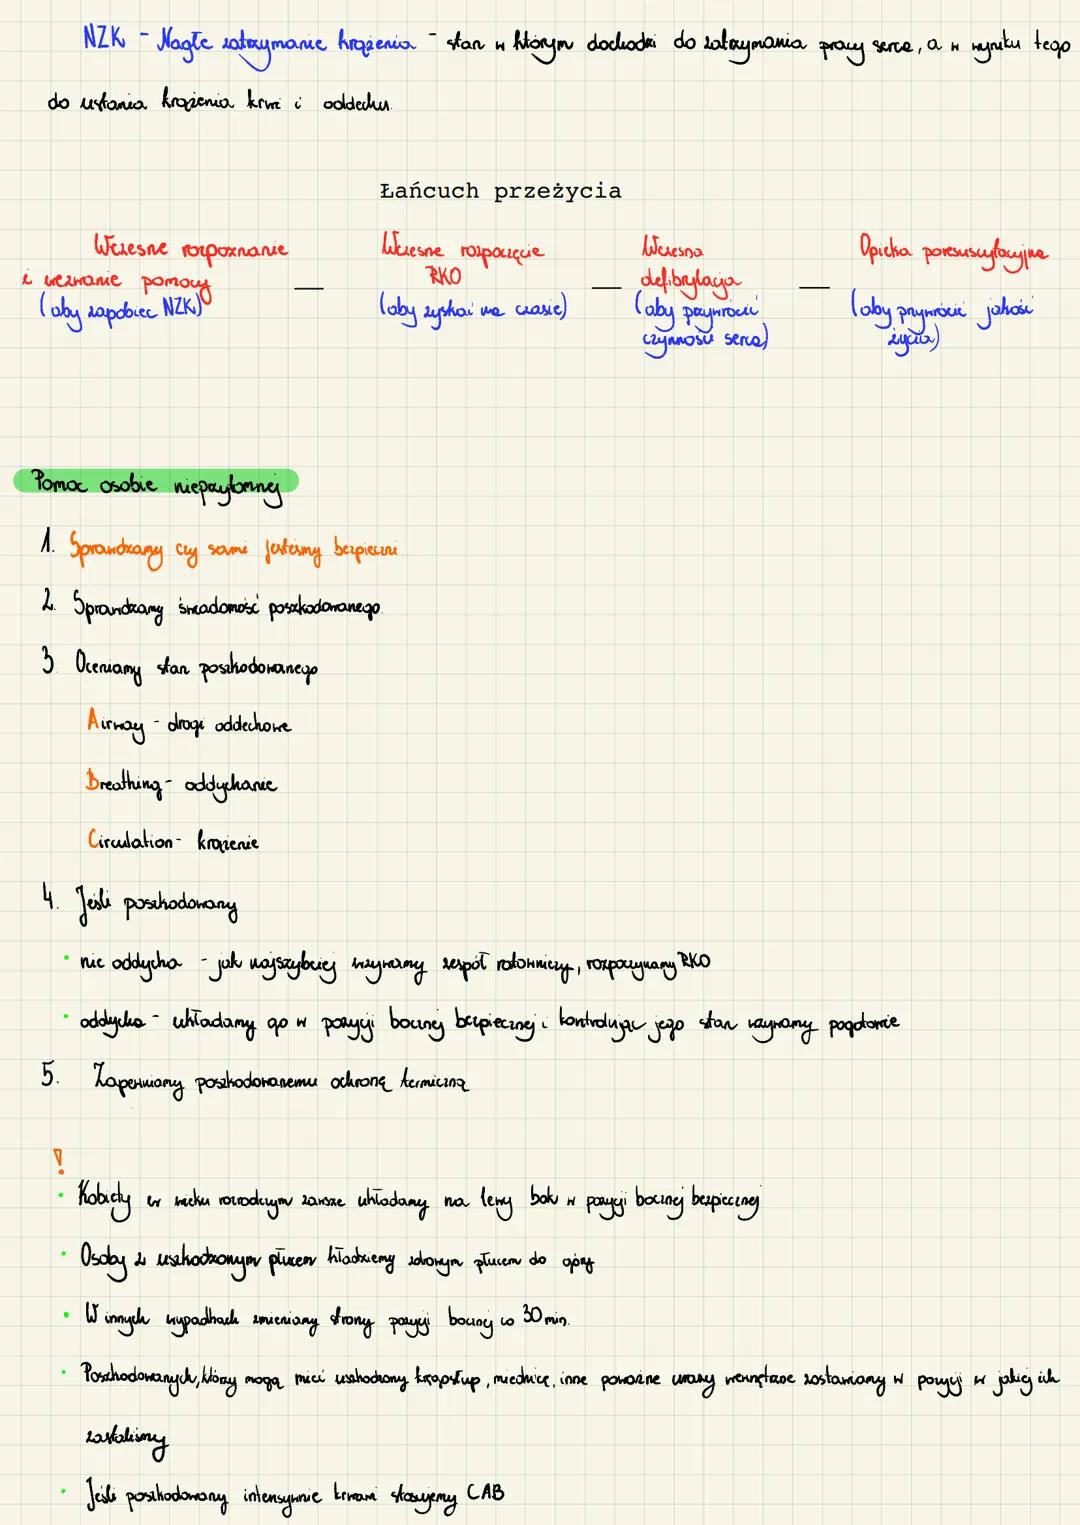 NZK - Nagłe zatrzymanie krążenia - stan w którym dochodzi do zatrzymania pracy serca, a w wyniku tego
do ustania krążenia krwi i oddechu.
Łańcuch przeżycia
Wczesne rozpoznanie
i wezwanie pomocy
(aby zapobiec NZK)
—
Wczesne rozpoczęcie
RKO
(aby zyskać na czasie)
—
Wczesna
defibrylacja
(aby przywrócić
czynność serca)
—
Opieka poresuscytacyjna
(aby przywrócić jakość
życia)
Pomoc osobie nieprzytomnej
1. Sprawdzamy czy sami jesteśmy bezpieczni
2. Sprawdzamy świadomość poszkodowanego.
3. Oceniamy stan poszkodowanego
Airway - drogi oddechowe
Breathing - oddychanie
Circulation - krążenie
4. Jeśli poszkodowany
• nie oddycha - jak najszybciej wzywamy zespół ratowniczy, rozpoczynamy RKO
• oddycha - układamy go w pozycji bocznej bezpiecznej i kontrolując jego stan wzywamy pogotowie
5. Zapewniamy poszkodowanemu ochronę termiczną
!
• Kobiety w wieku rozrodczym zawsze układamy na lewy bok w pozycji bocznej bezpiecznej
• Osoby z uszkodzonym płucem kładziemy zdrowym płucem do góry
• W innych wypadkach zmieniamy strony pozycji bocznej co 30 min.
• Poszkodowanych, którzy mogą mieć uszkodzony kręgosłup, miednicę, inne poważne urazy wewnętrzne zostawiamy w pozycji w jakiej ich
zastaliśmy
• Jeśli poszkodowany intensywnie krwawi stosujemy CAB